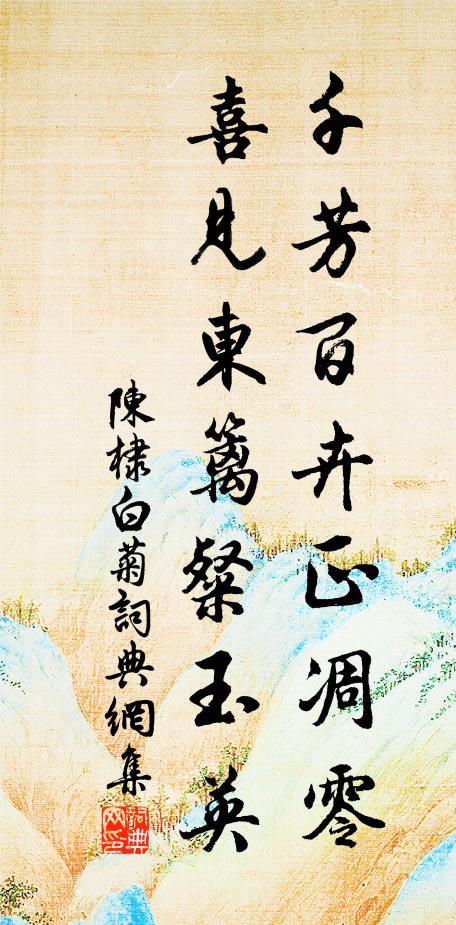 千芳百卉正凋零
喜見東籬粲玉英
陳棣白菊詞典網集
詞典網印